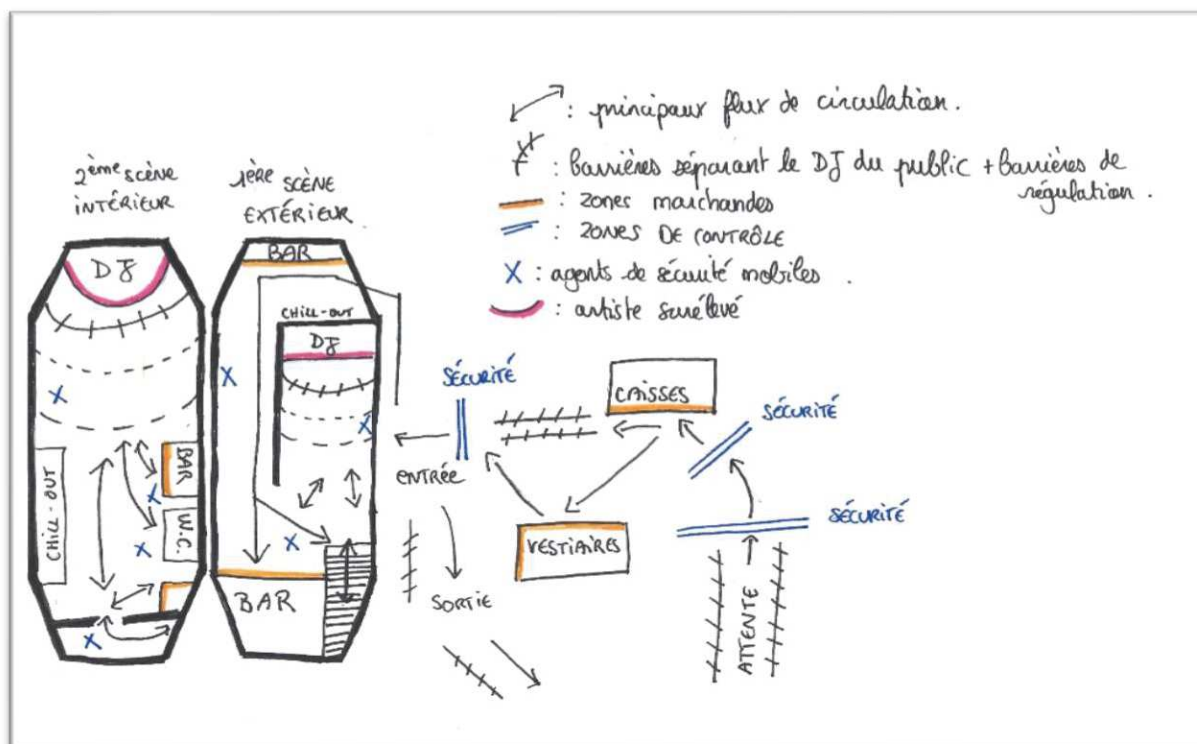 : principaux flux de circulation.
: barrières séparant le DJ du public + barrières de
régulation.
: zones marchandes
: ZONES DE CONTRÔLE
: agents de sécurité mobiles.
: artiste surélevé
2ème SCÈNE
INTÉRIEUR
1ÈRE SCÈNE
EXTÉRIEUR
DJ
BAR
CHILL-OUT
DJ
CHILL-OUT
BAR
W.C.
BAR
ENTRÉE
SORTIE
SÉCURITÉ
CAISSES
VESTIAIRES
SÉCURITÉ
SÉCURITÉ
ATTENTE